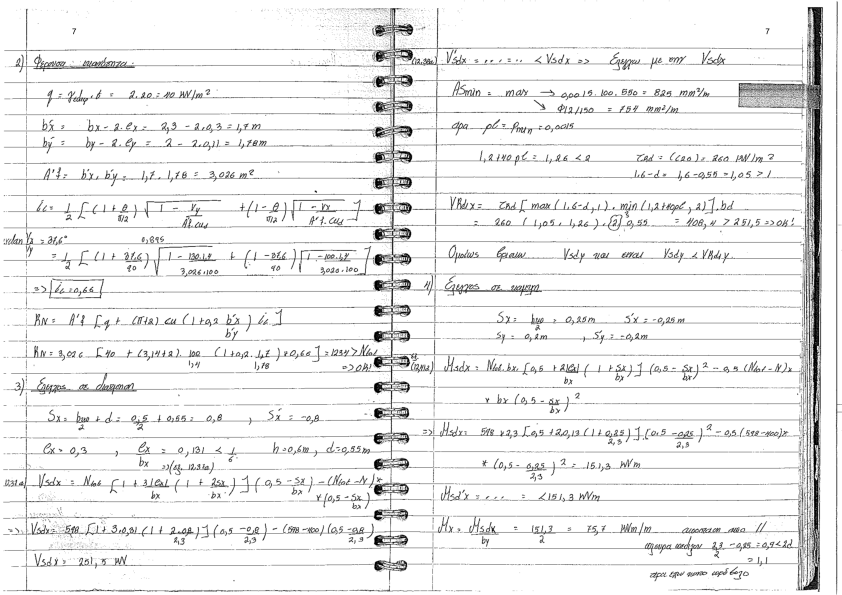 7
2) Φέρουσα ικανότητα:
q = γεδαφ.t = 2.20 = 40 kN/m²
b'x = bx - 2.ex = 2,3 - 2.0,3 = 1,7m
b'y = by - 2.ey = 2 - 2.0,11 = 1,78m
A'f = b'x.b'y = 1,7.1,78 = 3,026 m²
ic = 1/2 [(1 + θ/π/2) √(1 - Vy/A'f.cud) + (1 - θ/π/2) √(1 - Vx/A'f.cud)]
Vx/Vy = 37,6° 0,895
= 1/2 [(1 + 37,6/90) √(1 - 130.1,4/3,026.100) + (1 - 37,6/90) √(1 - 100.1,4/3,026.100)]
=> ic = 0,66
RN = A'f [q + (π+2) cu (1+0,2 b'x/b'y) ic]
RN = 3,026 [40 + (3,14+2) . 100/1,4 (1+0,2.1,7/1,78) × 0,66] = 1234 > Ntot
=> OK!
3) Έλεγχος σε διάτμηση
Sx = bυπ/2 + d = 0,5/2 + 0,55 = 0,8 , S'x = -0,8
ex = 0,3 , ex/bx = 0,131 < 1/6 h = 0,6m, d = 0,55m
=> (εξ. 12.37α)
Vsdx = Ntot [1 + 3|ex|/bx (1 + 2Sx/bx)] (0,5 - Sx/bx) - (Ntot - N) *
* (0,5 - Sx/bx)
=> Vsdx = 598 [1 + 3.0,31 (1 + 2.0,8/2,3)] (0,5 - 0,8/2,3) - (598-400)(0,5 - 0,8/2,3)
Vsdx = 251,5 kN
7
V'sdx = ....... < Vsdx => Έλεγχω με την Vsdx
ASmin = max → 0,0015.100.550 = 825 mm²/m
↘ Φ12/150 = 754 mm²/m
άρα ρl = ρmin = 0,0015
1,2+40ρl = 1,26 < 2 τRd = (C20) = 260 kN/m²
1.6-d = 1,6-0,55 = 1,05 > 1
VRdix = τRd [max (1.6-d, 1) . min (1,2+40ρl, 2)] . bd
= 260 (1,05 . 1,26) . 2 . 0,55 = 408,4 > 251,5 => OK!
Ομοίως βρίσκω Vsdy και είναι Vsdy < VRdiy.
4) Έλεγχος σε κάμψη
Sx = bυπ/2 = 0,25m S'x = -0,25m
Sy = 0,2m , S'y = -0,2m
Msdx = Ntot.bx. [0,5 + 2|ex|/bx (1 + Sx/bx)] (0,5 - Sx/bx)² - 0,5 (Ntot-N) ×
× bx (0,5 - Sx/bx)²
=> Msdx = 598 × 2,3 [0,5 + 2.0,13 (1 + 0,25/2,3)] . (0,5 - 0,25/2,3)² - 0,5 (598-400) *
* (0,5 - 0,25/2,3)² = 151,3 kNm
Msd'x = .... = < 151,3 kNm
Mx = Msdx/by = 151,3/2 = 75,7 kNm/m
2,3/2 - 0,25 = 0,9 < 2d
= 1,1